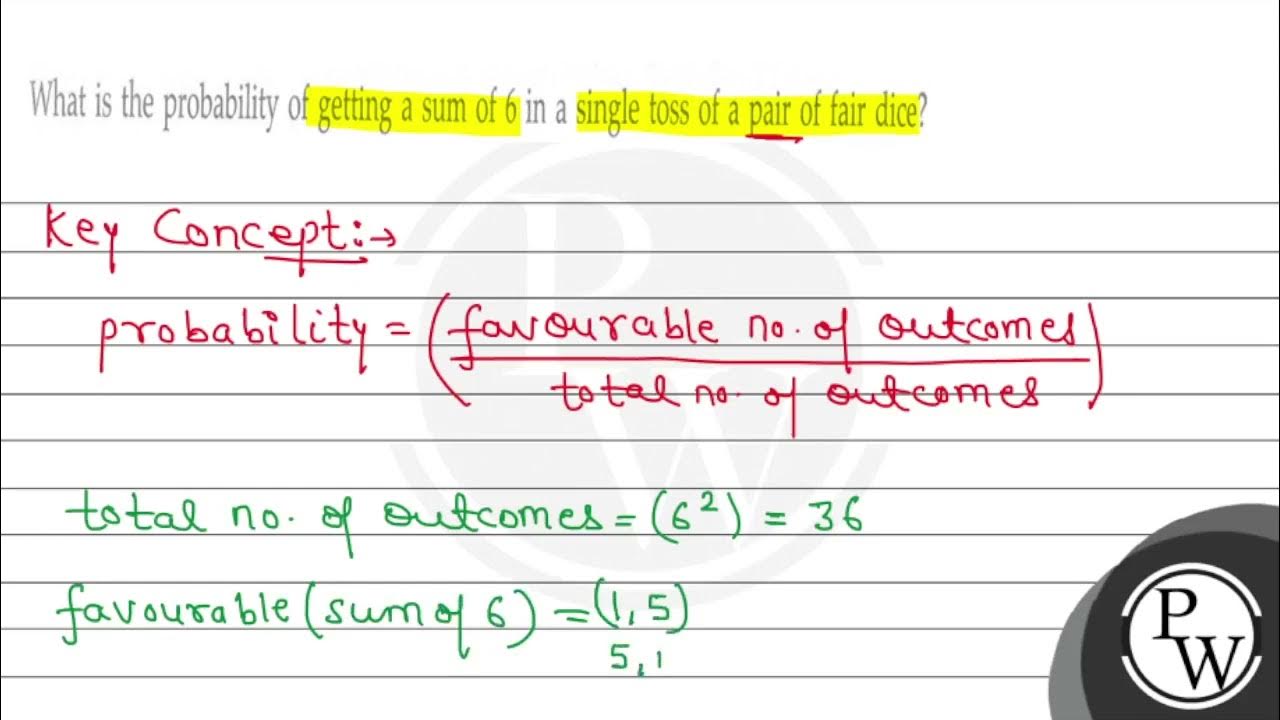 What is the probability of getting a sum of 6 in a single toss of a pair of fair dice?
Key Concept:→
probability = (favourable no. of outcomes
total no. of outcomes)
total no. of outcomes = (6²) = 36
favourable (sum of 6) = (1, 5)
5, 1
PW
PW